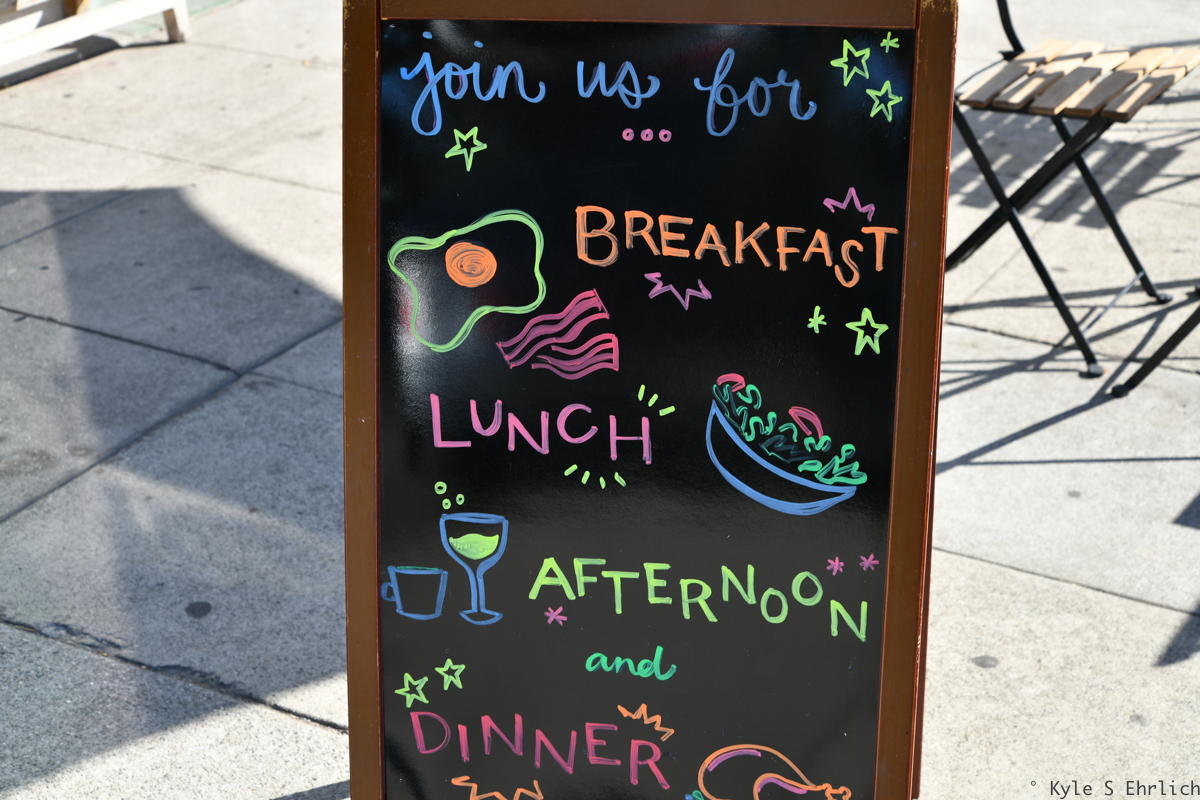 join us for
BREAKFAST
LUNCH
AFTERNOON
and
DINNER
° Kyle S Ehrlich